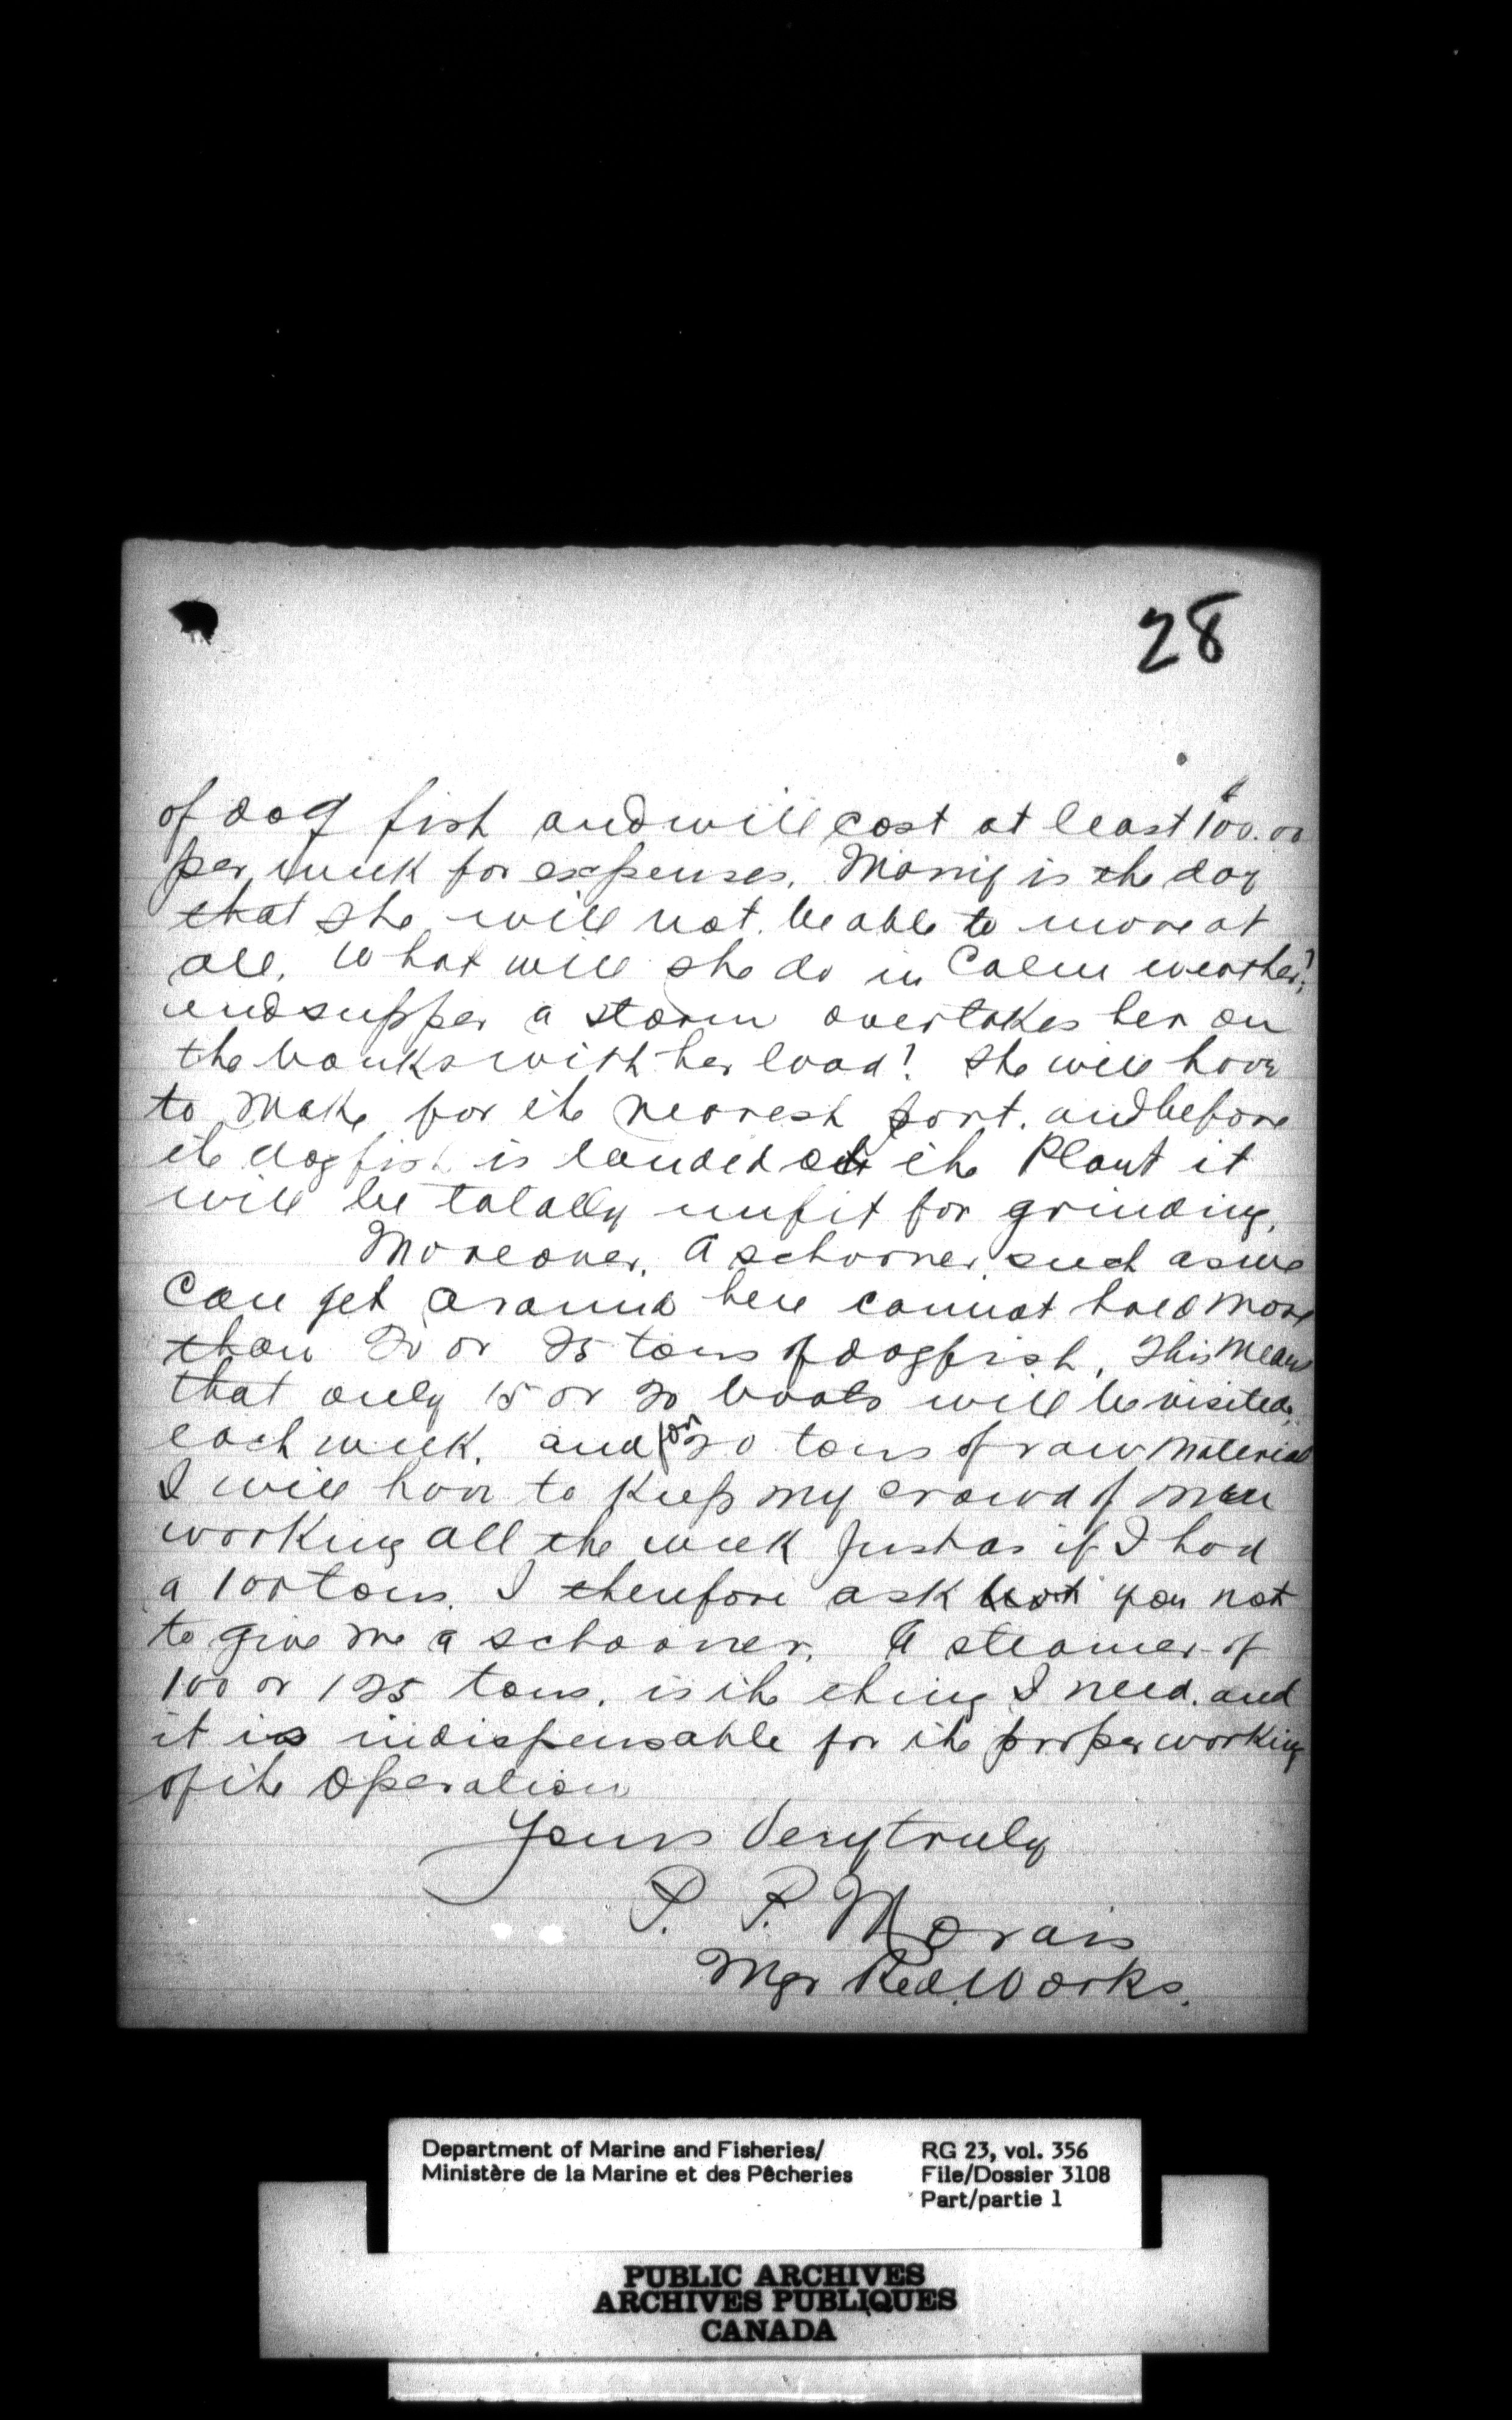 28
of dog fish and will cost at least $100.00
per week for expenses. Many is the day
that she will not be able to move at
all. What will she do in Calm weather?
and supper a storm overtakes her on
the banks with her load! She will have
to make for the nearest port. and before
the dogfish is landed at the Plant it
will be totally unfit for grinding.
Moreover, A schooner, such as we
Can get around here cannot hold more
than 20 or 25 tons of dogfish. This means
that only 15 or 20 boats will be visited
each week. and for 20 tons of raw material
I will have to keep my crowd of men
working all the week just as if I had
a 100 tons. I therefore ask you not
to give me a schooner. A steamer of
100 or 125 tons. is the thing I need. and
it is indispensable for the proper working
of the Operation
Yours Very truly
P. P. Morais
Mgr Red. Works.
Department of Marine and Fisheries/
Ministère de la Marine et des Pêcheries
RG 23, vol. 356
File/Dossier 3108
Part/partie 1
PUBLIC ARCHIVES
ARCHIVES PUBLIQUES
CANADA